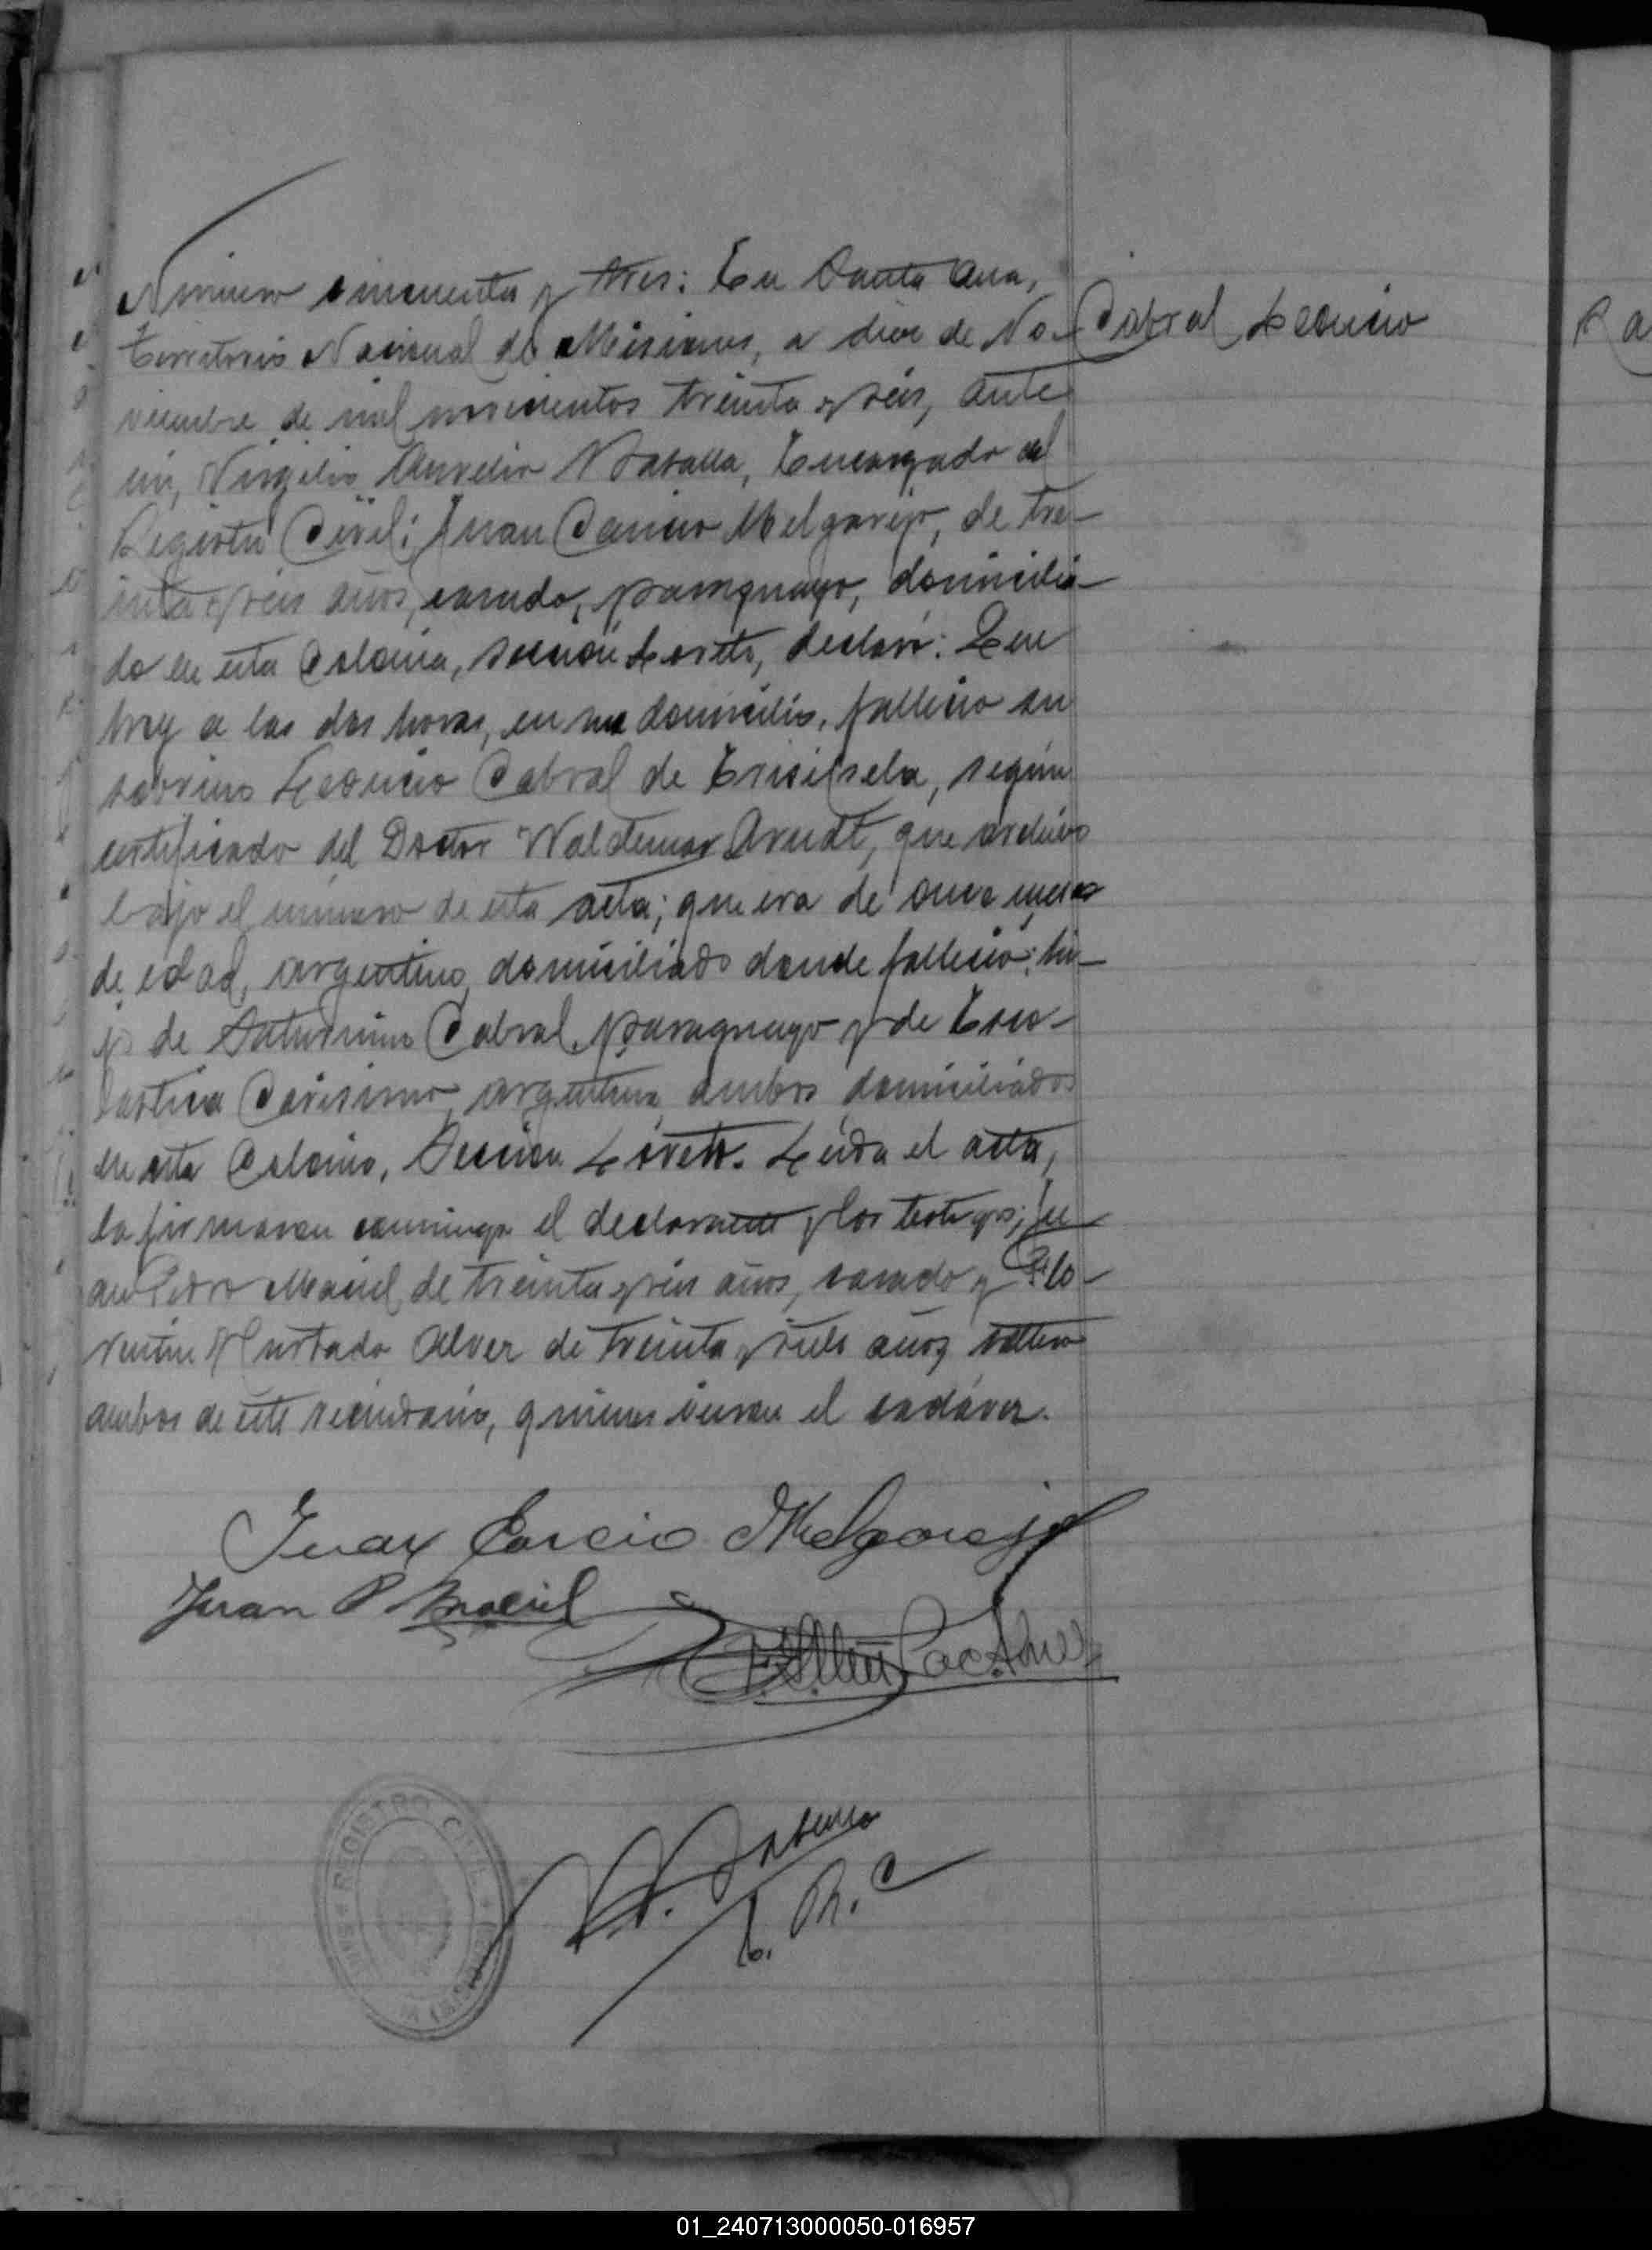 Número cincuenta y tres: En Santa Ana,
Territorio Nacional de Misiones, a diez de No-
Cabral Leoncio
viembre de mil novecientos treinta y seis, ante
mí, Virgilio Aurelio Batalla, Encargado del
Registro Civil: Juan Cancio Melgarejo, de tre-
inta y seis años, casado, paraguayo, domicilia-
do en esta Colonia, sección Loreto, declaró: Que
hoy a las dos horas, en su domicilio, falleció su
sobrino Leoncio Cabral de Erisipela, según
certificado del Doctor Waldemar Arndt, que archivo
bajo el número de esta acta; que era de once meses
de edad, argentino, domiciliado donde falleció; hi-
jo de Saturnino Cabral, paraguayo y de Esco-
lastica Carisimo, argentina, ambos domiciliados
en esta Colonia, Sección Loreto. Leída el acta,
la firmaron conmigo el declarante y los testigos; Ju-
an Pedro Maciel, de treinta y seis años, casado y Flo-
rentin Hurtado Alver de treinta y siete años, soltero
ambos de este vecindario, quienes vieron el cadáver.
Juan Cancio Melgarejo
Juan P Maciel
V. A. Batalla
E. R. C
REGISTRO CIVIL
01_240713000050-016957